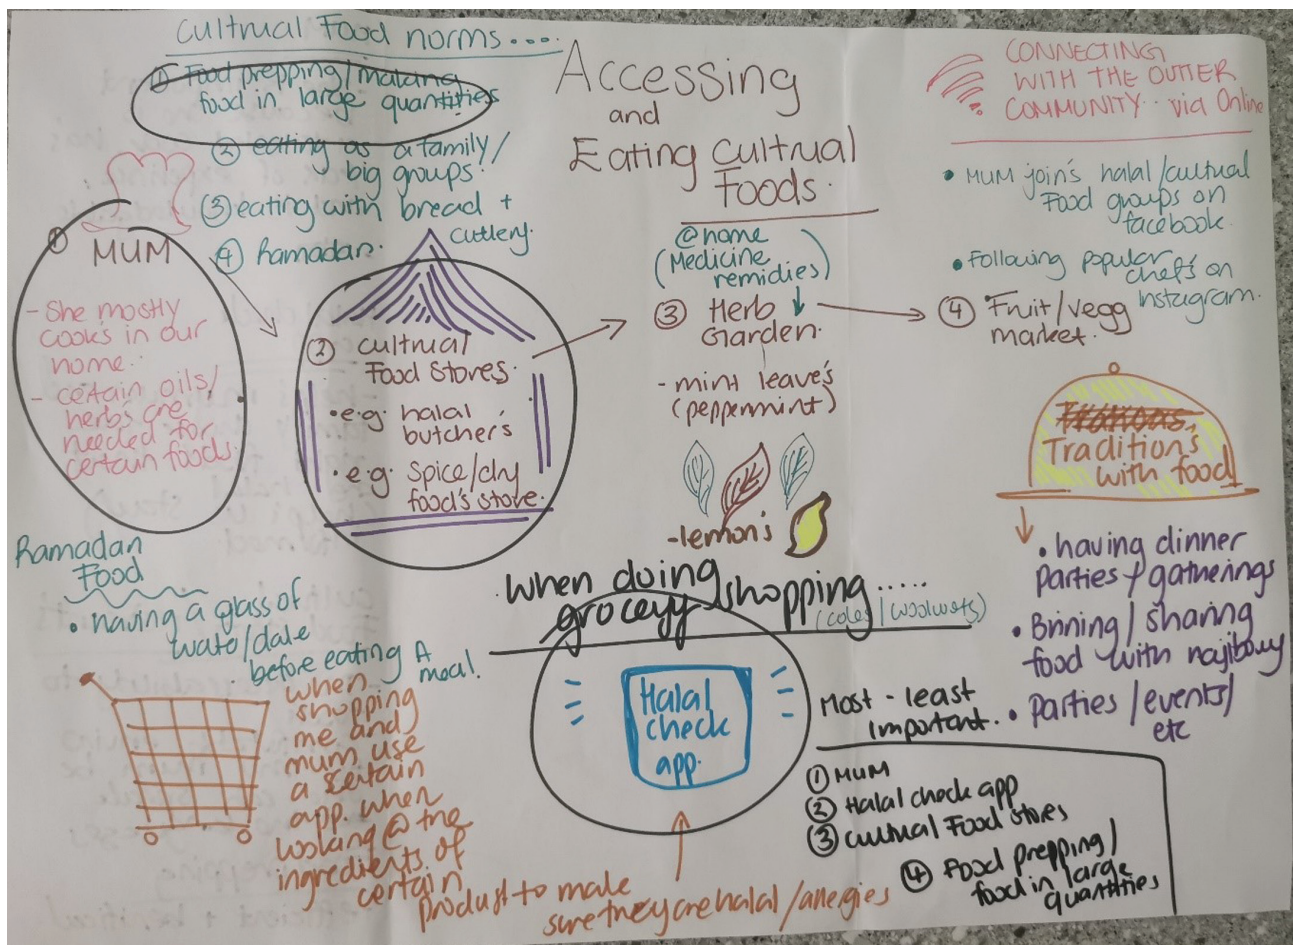 Cultrual Food norms....
① Food prepping/making
food in large quantities
② eating as a family/
big groups.
③ eating with bread +
cutlery.
④ Ramadan.
Accessing
and
Eating Cultrual
Foods.
CONNECTING
WITH THE OUTTER
COMMUNITY. via Online
• MUM join's halal/cultrual
Food groups on
facebook.
• Following popular
chefs on
Instagram.
① MUM
- She mostly
cooks in our
home.
- certain oils/
herbs are
needed for
certain foods.
② cultrual
Food Stores.
• e.g. halal
butcher's
• e.g. Spice/dry
food's store.
@home
(Medicine
remidies)
③ Herb
Garden.
- mint leave's
(peppermint)
- lemon's
④ Fruit/vegg
market.
Tradition's
with food
• having dinner
parties + gatherings
• Binning/sharing
food with
• Parties/events/
etc
Ramadan
Food
• having a glass of
/date
before eating A
meal.
when
shopping
me and
mum use
a certain
app. when
looking @ the
ingredients of
certain
product to make
sure they are halal/
When doing
grocery shopping.....
(coles/woolwots)
Halal
check
app.
Most - least
important.
① MUM
② Halal check app
③ cultrual Food stores
④ Food prepping/
food in large
quantities